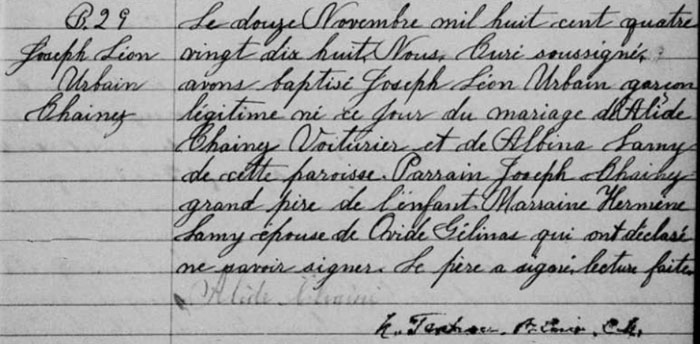 B. 29
Joseph Léon
Urbain
Chainey
Le douze Novembre mil huit cent quatre
vingt dix huit, Nous, Curé soussigné,
avons baptisé Joseph Léon Urbain garçon
légitime né ce jour du mariage d'Alide
Chainey Voiturier et de Albina Lamy
de cette paroisse. Parrain Joseph Chainey
grand père de l'enfant. Marraine Hermène
Lamy épouse de Ovide Gélinas qui ont déclaré
ne savoir signer. Le père a signé, lecture faite.
Alide